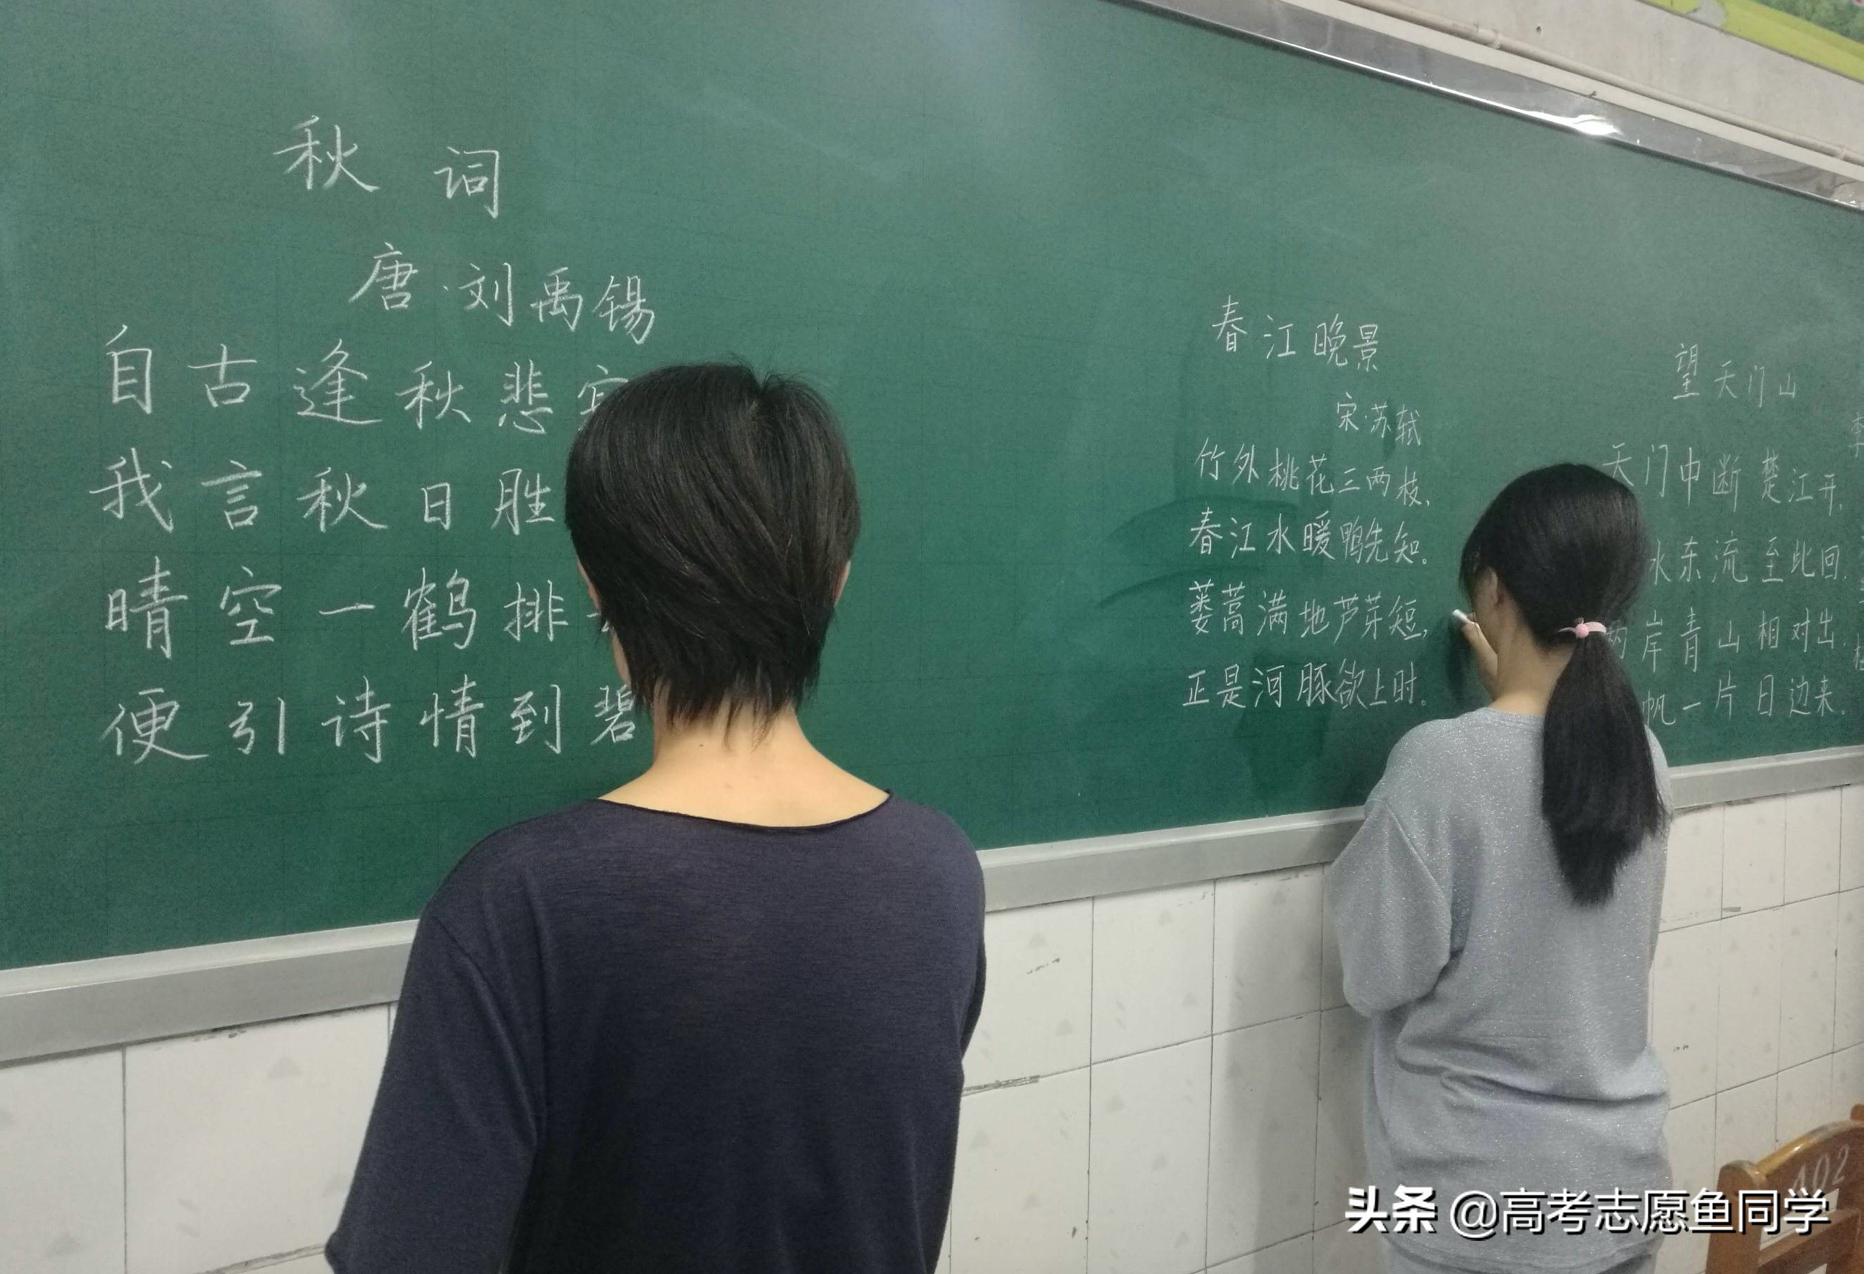 秋词
唐·刘禹锡
自古逢秋悲
我言秋日胜
晴空一鹤排
便引诗情到碧
春江晚景
宋·苏轼
竹外桃花三两枝,
春江水暖鸭先知。
蒌蒿满地芦芽短,
正是河豚欲上时。
望天门山
李
天门中断楚江开,
水东流至此回.
两岸青山相对出.
帆一片日边来.
402
头条 @高考志愿鱼同学